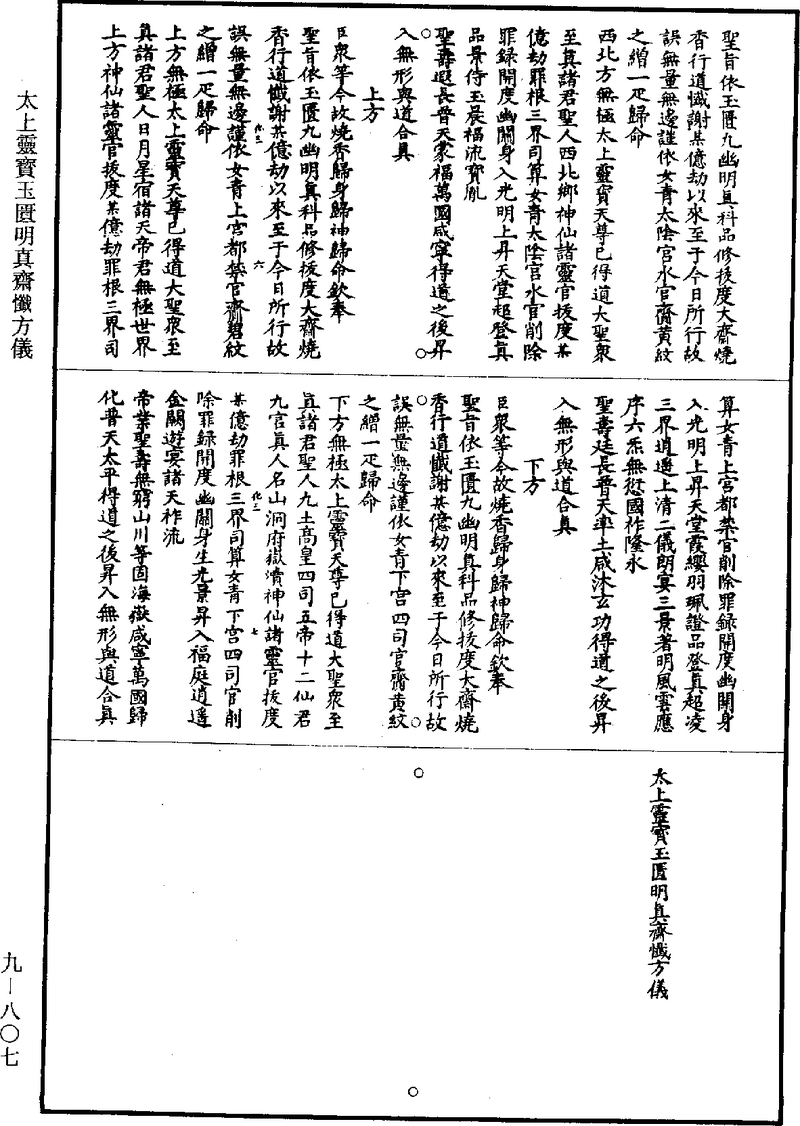 聖旨依玉匱九幽明真科品修拔度大齋燒
香行道懺謝某億劫以來至于今日所行故
誤無量無邊謹依女青太陰宮水官齋黃紋
之繒一疋歸命
西北方無極太上靈寶天尊已得道大聖衆
至真諸君聖人西北鄉神仙諸靈官拔度某
億劫罪根三界司算女青太陰宮水官削除
罪録開度幽關身入光明上昇天堂超登真
品景侍玉宸福流寶胤
聖壽遐長普天蒙福萬國咸寧得道之後昇
入無形與道合真
上方
臣衆等今故燒香歸身歸神歸命欽奉
聖旨依玉匱九幽明真科品修拔度大齋燒
香行道懺謝某億劫以來至于今日所行故
誤無量無邊謹依女青上宮都禁官齋碧紋
之繒一疋歸命
上方無極太上靈寶天尊已得道大聖衆至
真諸君聖人日月星宿諸天帝君無極世界
上方神仙諸靈官拔度某億劫罪根三界司
算女青上宮都禁官削除罪録開度幽關身
入光明上昇天堂霞纓羽珮證品登真超凌
三界逍遙上清二儀朗宴三景著明風雲應
序六炁無愆國祚隆永
聖壽延長普天率土咸沐玄功得道之後昇
入無形與道合真
下方
臣衆等今故燒香歸身歸神歸命欽奉
聖旨依玉匱九幽明真科品修拔度大齋燒
香行道懺謝某億劫以來至于今日所行故
誤無量無邊謹依女青下宮四司官齋黃紋
之繒一疋歸命
下方無極太上靈寶天尊已得道大聖衆至
真諸君聖人九土高皇四司五帝十二仙君
九宮真人名山洞府嶽瀆神仙諸靈官拔度
某億劫罪根三界司算女青下宮四司官削
除罪録開度幽關身生光景昇入福庭逍遙
金闕遊宴諸天祚流
帝業聖壽無窮山川等固海嶽咸寧萬國歸
化普天太平得道之後昇入無形與道合真
太上靈寶玉匱明真齋懺方儀
太上靈寶玉匱明真齋懺方儀
九—八〇七